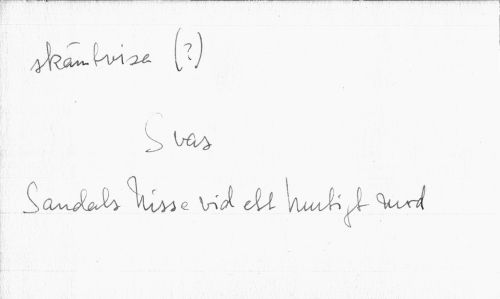 skämtvisa (?)
Svas
Sandals Nisse vid ett hurtigt mod